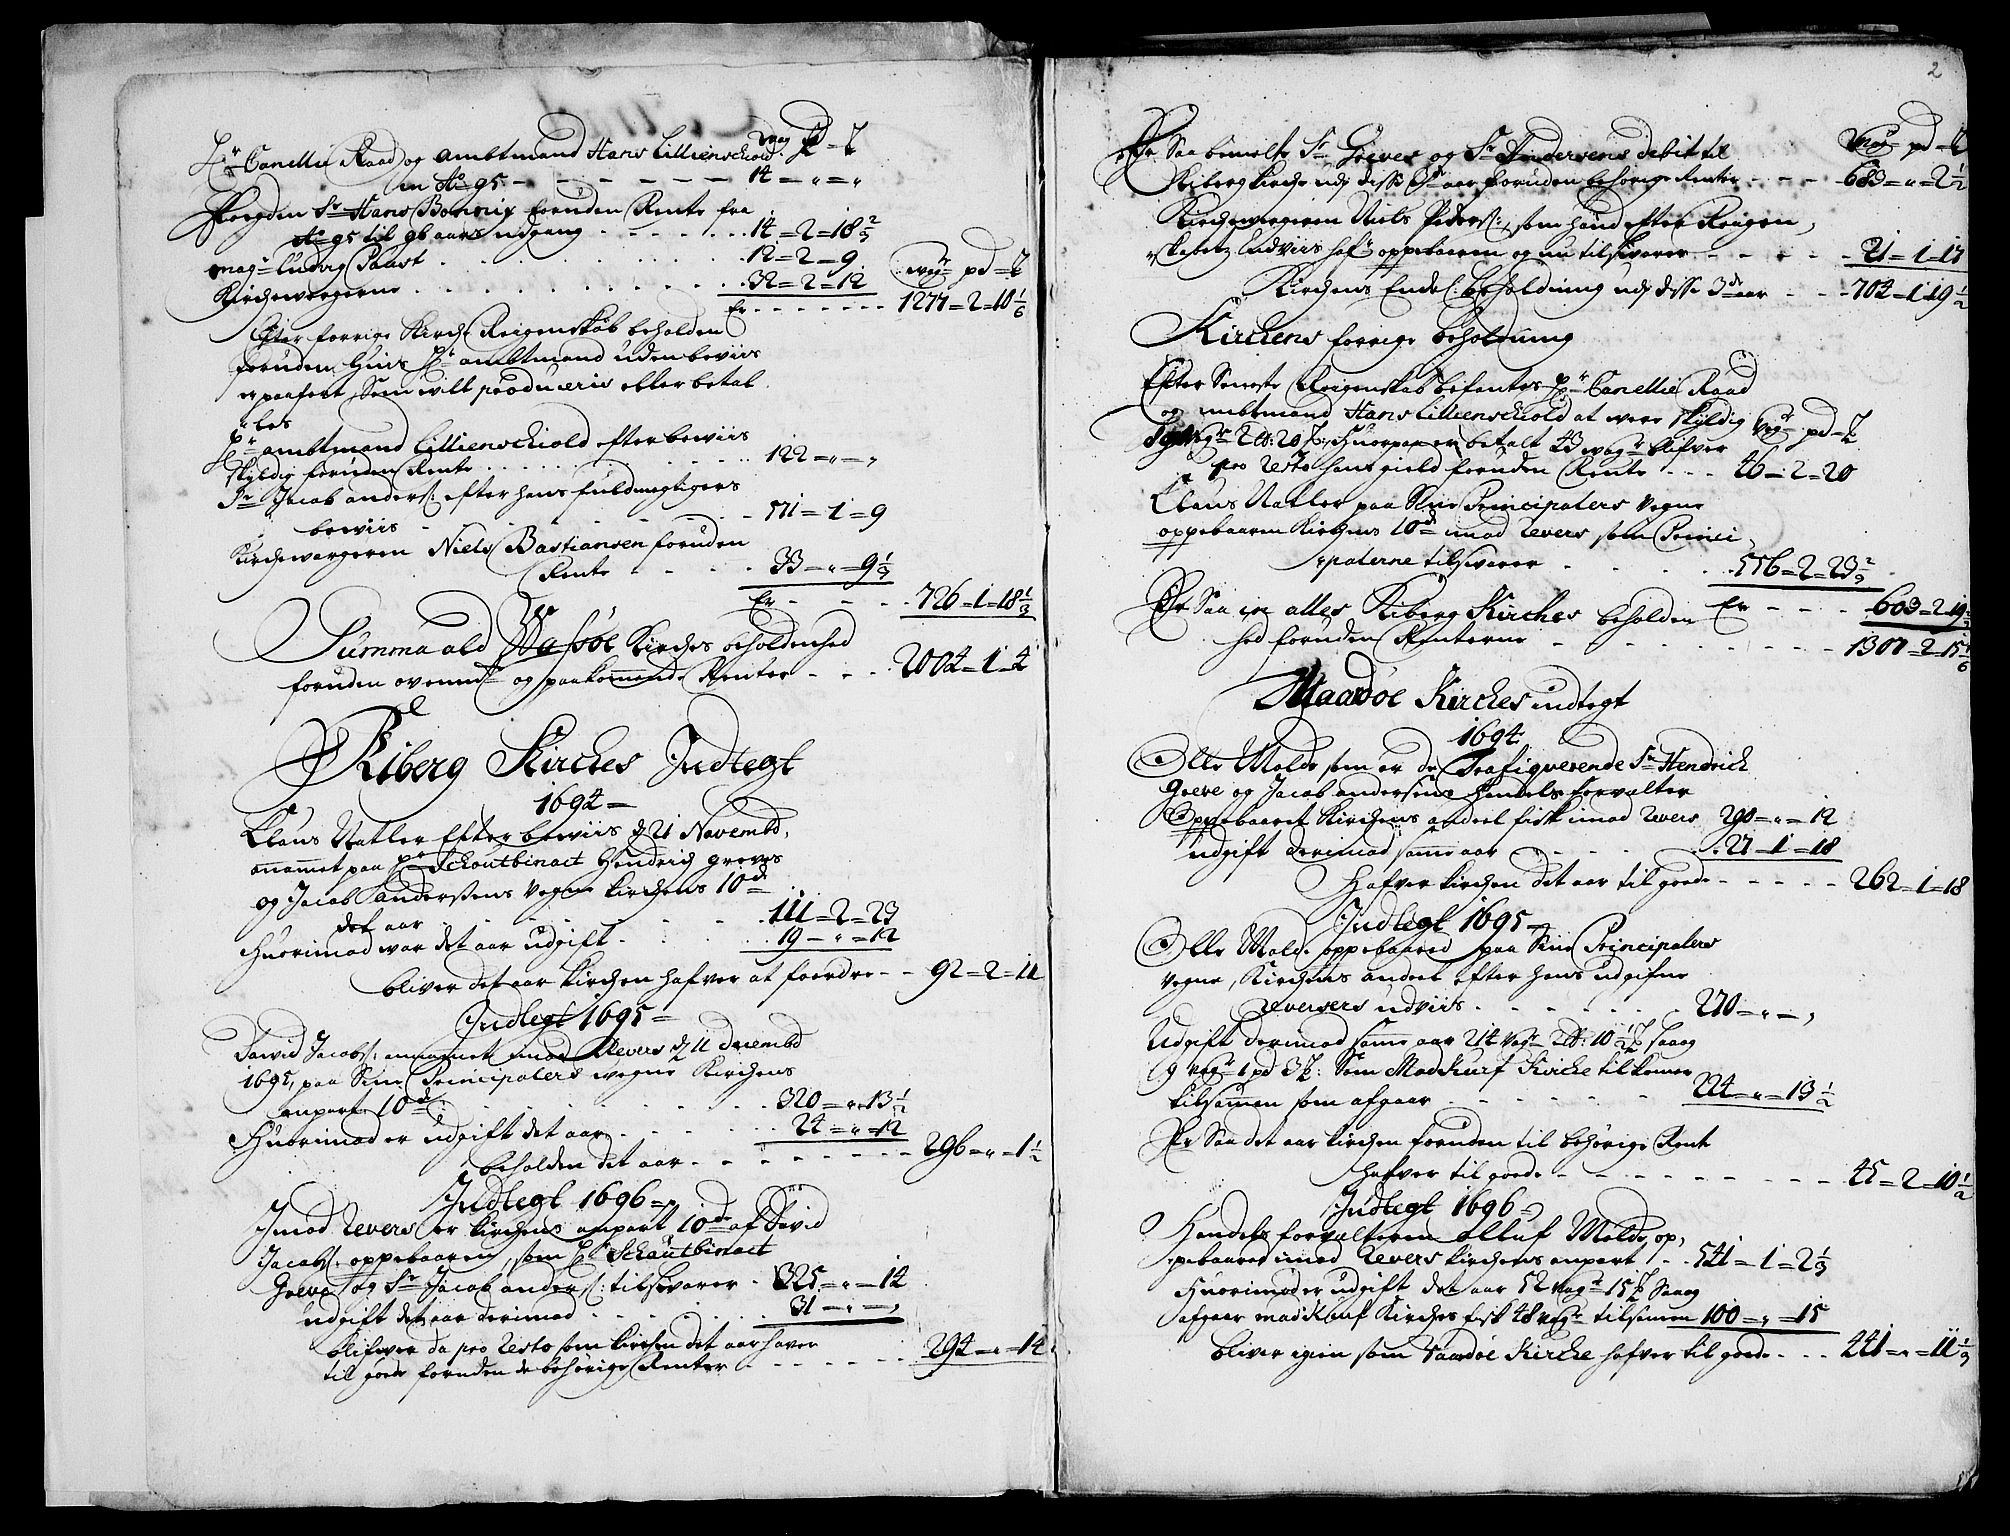 wog pd – ℔
Hr Cancellie Raad og Ambtmand Hans Lillienschiold
in Ao 95 – – – – – – 14 – „ – „
Fogden Sr Hans Bonnix foruden Rente fra
Ao 95 til 96 aars udgang . . . . . 14 – 2 – 18 2/3
Magr Ludvig Paust . . . . . 12 – 2 – 9
wog pd – ℔
Kirchewergerne . . . . . 32 – 2 – 12
Er . . . . . 1277 – 2 – 10 1/6
Efter forrige Kirche Reigenskab beholden
foruden huis Hr ambtmand uden beviis
er paaført, Som vilt produceris eller betal
les
Hr ambtmand Lillienschiold efter beviis
skyldig foruden Rente . . . . . 122 – „ – „
Sr Jacob anders: efter hans fuldmegtigers
beviis – – – – – 571 – 1 – 9
Kirchewergeren Niels Bastiansen foruden
Rente – – – . 33 – „ – 9 1/3
Er – – – . . 726 – 1 – 18 1/3
Summa ald Wasøe Kirches beholdenhed
foruden ovenmte og paakommende Renter – – . . 2004 – 1 – 4
Kiberg Kirches Indtegt
1694 –
Claus Natler Efter beviis d 21 Novembr,
anammet paa Hr Schoutbinact Hendrich greves
og Jacob Anderssens Vegne kirchens 10de
det aar – – – – – 111 – 2 – 23
Huorimod war det aar udgift . . . . 19 – „ – 12
bliver det aar kirchen hafver at foerdre – – 92 – 2 – 11
Indtegt 1695 –
David Jacobs: annammet imod Revers d 11 decembr
1695, paa Sine Principalers wegne Kirchens
anpart 10de . . . . . 320 – „ – 13 1/2
Huorimod er udgift det aar . . . . . 24 – „ – 12
beholden det aar . – – – – – 296 – „ – 1 1/2
Indtegt 1696 –
Imod Revers er kirchens anpart 10de af David
Jacobs: oppebaaren, som Hr Schautbinact
Greve og Sr Jacob anders: tilsvarer . 325 – „ – 14
udgift det aar derimod . . . . . 31 – „ – „
blifwer da pro Resto som kirchen det aar haver
til goede foruden de behørige Renter – – – – – 294 – „ – 14
2
Er Saa bemelte Sr Greves og Sr Andersens debit til
wog pd – ℔
Kiberg kirche udj disse 3de aar foruden behørige Renter – – – – 683 – „ – 2 1/2
Kirchewergeren Niels Peders:, som hand efter Reigen,
skabens Indviis hafr oppebaaren og nu tilswarer – – – – . 21 – 1 – 17
Kirchens Endel: beholdning udj disse 3de aar – – . 704 – 1 – 19 1/2
Kirchens forrige beholdning
Efter Seneste Reigenskab befantes Hr Cancellie Raad
og ambtmand Hans Lillienschiold at were skyldig
wog pd – ℔
89 wogr 2 ℔: 20 ℔: Huorpaa er betalt 43 wogr blifver
pro Resto hans gield foruden Rente – – – 46 – 2 – 20
Claus Natler paa Sine Principalers Vegne
oppebaaren Kirchens 10de imod Revers som Princi
palerne tilswarer . . . . . 556 – 2 – 23 2/3
Er Saa in alles Kiberg Kirches beholden
Er – – – . 603 – 2 – 19 2/3
hed foruden Renterne – – – – – – . . 1307 – 2 – 15 1/6
Maardøe Kirches indtegt
1694
Olle Molde som er de Trafiqverende Sr Hendrich
Greve og Jacob andersens Handels forvalter
Oppebaaret Kirchens andeel fisk imod Revers 290 – „ – 12
udgift derimod samme aar . . . . 27 – 1 – 18
Hafver kirchen det aar til goede – – – – – 262 – 1 – 18
Indtegt 1695 –
Olle Molde oppebaared paa Sine Principalers
vegne, Kirchens andeel efter hans udgifne
Reversers udviis . . . . . 270 – „ – „
Udgift derimod samme aar 214 wogr 2 ℔: 10 1/2 ℔ saaog
9 wogr 1 pd 3 ℔: Som Madkurf Kirche tilkomer
tilsammen som afgaar – – – – – 224 – „ – 13 1/2
Er Saa det aar kirchen foruden til behørige Rent
hafver til goede – – – – – – – – 45 – 2 – 10 1/2
Indtegt 1696 –
Handels forvalteren Olluf Molde, op,
pebaared imod Revers kirchens anpart . . 541 – 1 – 2 1/3
Huorimod er udgift det aar 52 wogr 15 ℔ Saaog
afgaar Madkurf Kirches fisk 48 wogr tilsamen 100 – „ – 15
bliver igien som Vaardøe Kirche hafver til goede – . . 441 – „ – 11 1/3